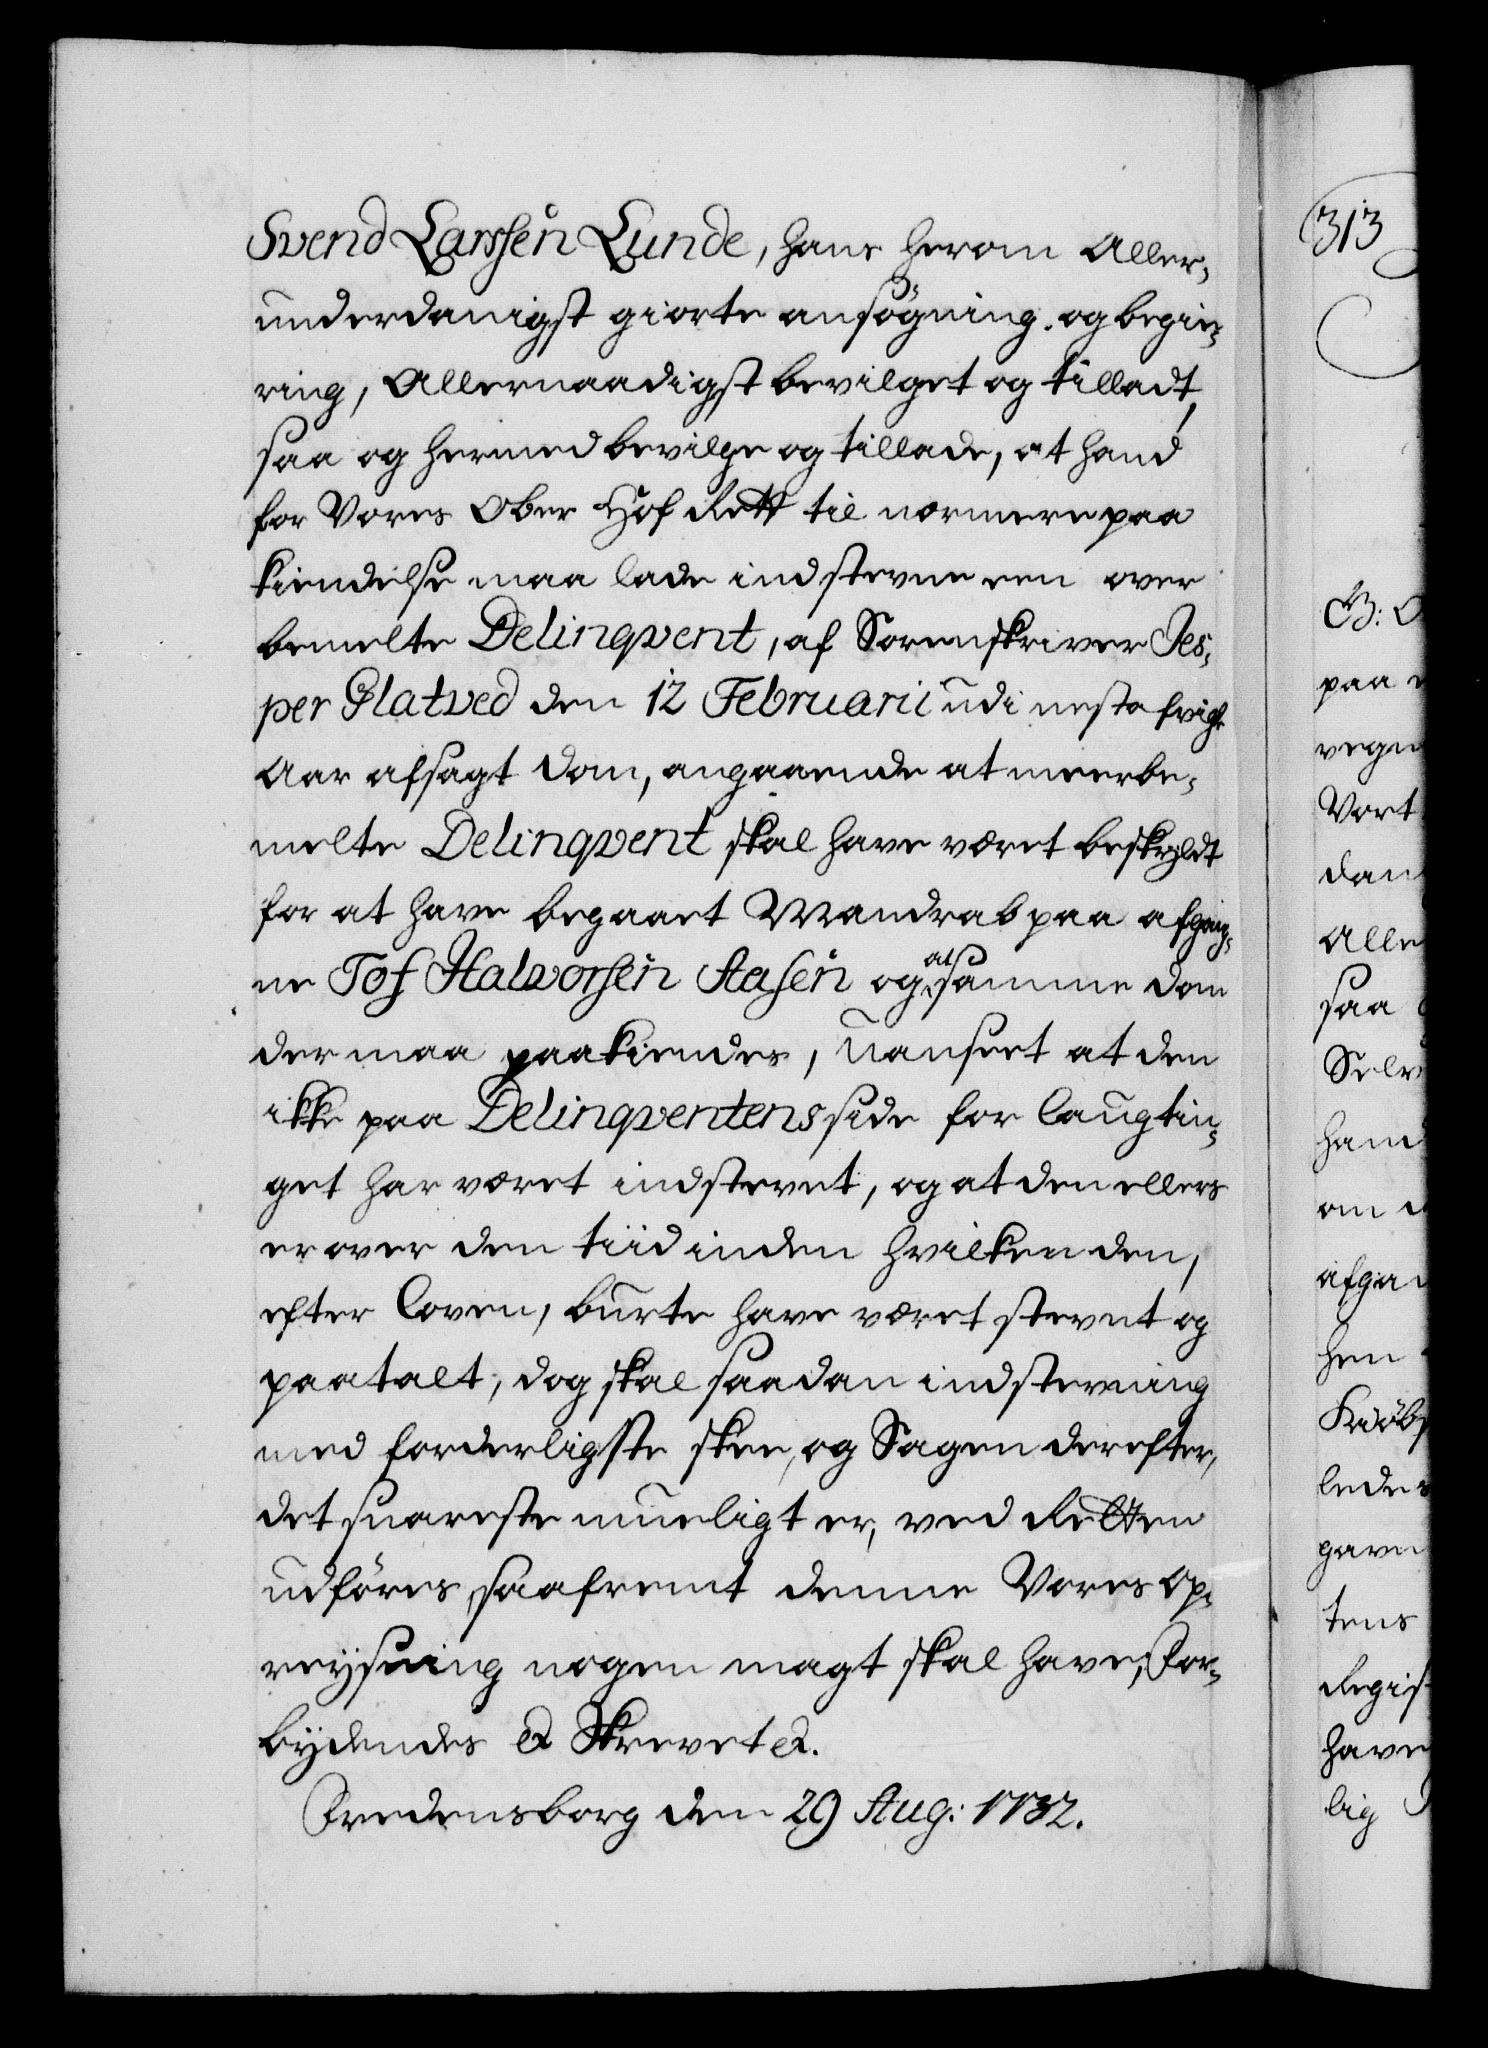 Svend Larssen Lunde, hans herom Aller-
underdanigst giorte ansøgning og begie-
ring, Allernaadigst bevilget og tilladt,
saa og hermed bevilge og tillade, at hand
for Vores Ober Hof Rett til nærmere paa
kiendelse maa lade indstevne een over
bemelte Delinqvent, af Sorenskriver Jes-
per Platved den 12 Februarii udi neste
Aar afsagt dom, angaaende at meerbe-
melte Delinqvent skal have været beskyldt
for at have begaaet Mandrab paa afgang-
ne Tof Halvorsen Aasen og at samme dom
der maa paakiendes, uanseet at den
ikke paa Delinqventens side for laugtin-
get har været indstevnt, og at den ellers
er over den tiid inden hvilken den,
efter Loven, burte have været stevnt og
paatalt, dog skal saadan indstevning
med forderligste skee, og Sagen derefter,
det snareste mueligt er, ved Retten
udføres, saafremt denne Vores op-
reysning nogen magt skal have, For-
bydendes &c Skrevet &c.
Fredensborg den 29 Aug: 1732.
313
G: O
paa
vegn
Vort
dan
Alle
saa
Selv
hand
om
afga
hen
Kiøb
leder
gave
tens
Regis
have
lig